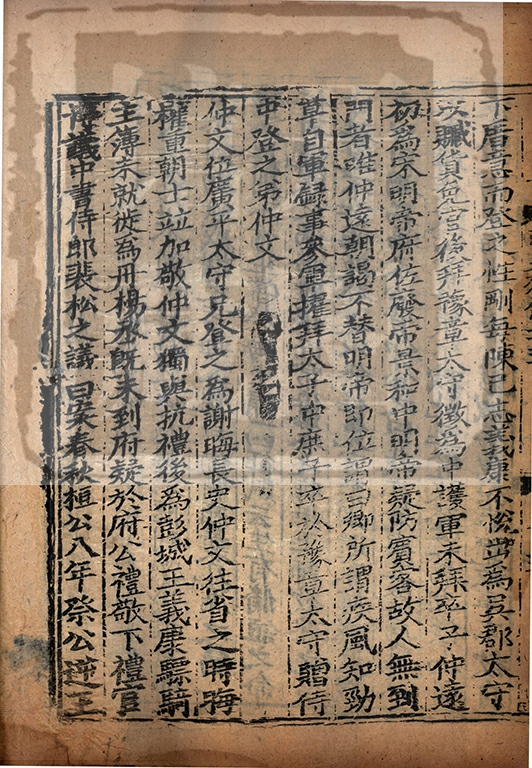 下厝意而登之性剛每陳己志義康不悅出為吳郡太守
以贓貨免官後拜豫章太守徵為中護軍未拜卒子仲遠
初為宋明帝府佐廢帝景和中明帝疑防賓客故人無到
門者唯仲遠朝謁不替明帝即位謂曰卿所謂疾風知勁
草自軍録事參軍擢拜太子中庶子卒於豫章太守贈侍
中登之弟仲文
仲文位廣平太守兄登之為謝晦長史仲文往省之時晦
權重朝士並加敬仲文獨與抗禮後為彭城王義康驃騎
主簿未就徙為丹楊丞既未到府疑於府公禮敬下禮官
博議中書侍郎裴松之議曰案春秋桓公八年祭公逆王